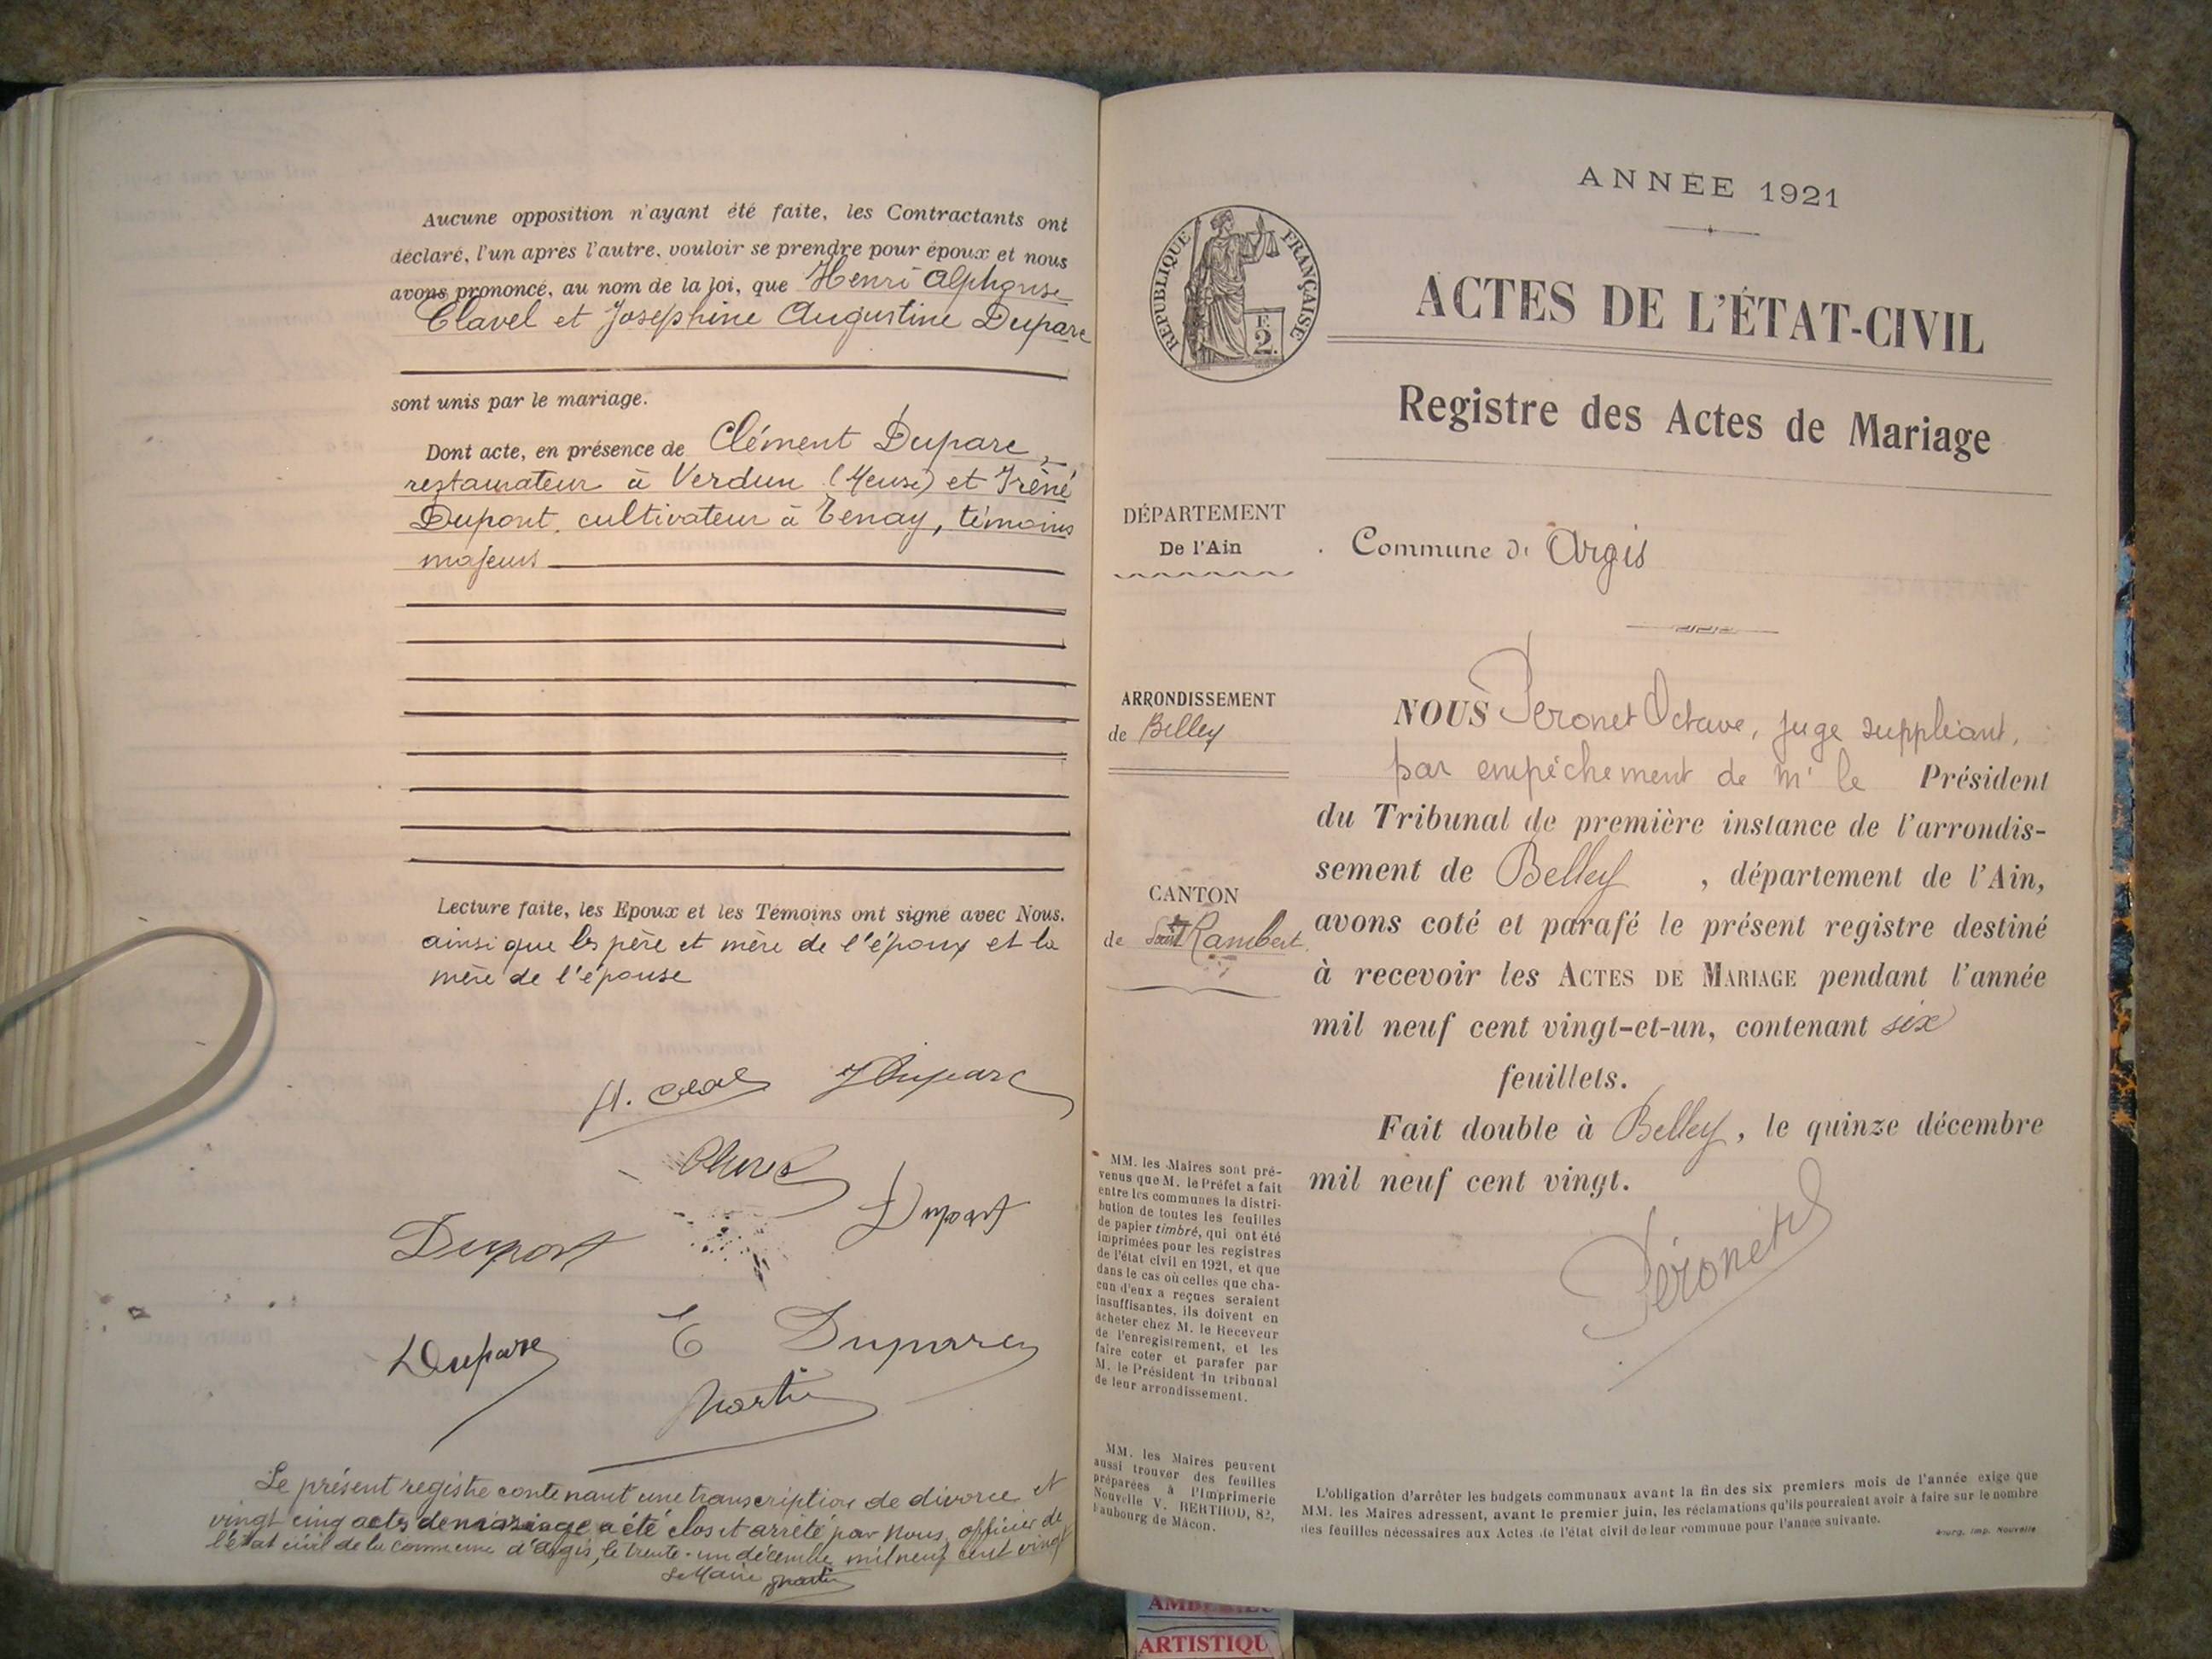 Aucune opposition n'ayant été faite, les Contractants ont
déclaré, l'un après l'autre, vouloir se prendre pour époux et nous
avons prononcé, au nom de la loi, que Henri Alphonse
Clavel et Joséphine Augustine Duparc
sont unis par le mariage.
Dont acte, en présence de Clément Duparc,
restaurateur à Verdun (Meuse) et Iréné
Dupont, cultivateur à Tenay, témoins
majeurs
Lecture faite, les Epoux et les Témoins ont signé avec Nous.
ainsi que les père et mère de l'époux et la
mère de l'épouse
H. Clavel JDuparc
Clavel
Dupont Dupont
Duparc E Duparc
Martin
Le présent registre contenant une transcription de divorce et
vingt cinq actes de mariage a été clos et arrêté par Nous, officier de
l'état civil de la commune d'Argis, le trente-un décembre mil neuf cent vingt
Le Maire Martin
ANNÉE 1921
RÉPUBLIQUE FRANÇAISE
F.
2.
ACTES DE L'ÉTAT-CIVIL
Registre des Actes de Mariage
DÉPARTEMENT
De l'Ain
Commune d' Argis
ARRONDISSEMENT
de Belley
CANTON
de Saint Rambert
NOUS Péronet Octave, juge suppléant,
par empêchement de Mr le Président
du Tribunal de première instance de l'arrondis-
sement de Belley, département de l'Ain,
avons coté et parafé le présent registre destiné
à recevoir les ACTES DE MARIAGE pendant l'année
mil neuf cent vingt-et-un, contenant six
feuillets.
Fait double à Belley, le quinze décembre
mil neuf cent vingt.
Péronet
MM. les Maires sont pré-
venus que M. le Préfet a fait
entre les communes la distri-
bution de toutes les feuilles
de papier timbré, qui ont été
imprimées pour les registres
de l'état civil en 1921, et que
dans le cas où celles que cha-
cun d'eux a reçues seraient
insuffisantes, ils doivent en
acheter chez M. le Receveur
de l'enregistrement, et les
faire coter et parafer par
M. le Président du tribunal
de leur arrondissement.
MM. les Maires peuvent
aussi trouver des feuilles
préparées à l'Imprimerie
Nouvelle V. BERTHOD, 82,
Faubourg de Mâcon.
L'obligation d'arrêter les budgets communaux avant la fin des six premiers mois de l'année exige que
MM. les Maires adressent, avant le premier juin, les réclamations qu'ils pourraient avoir à faire sur le nombre
des feuilles nécessaires aux Actes de l'état civil de leur commune pour l'année suivante.
Bourg, Imp. Nouvelle
ARTISTIQU